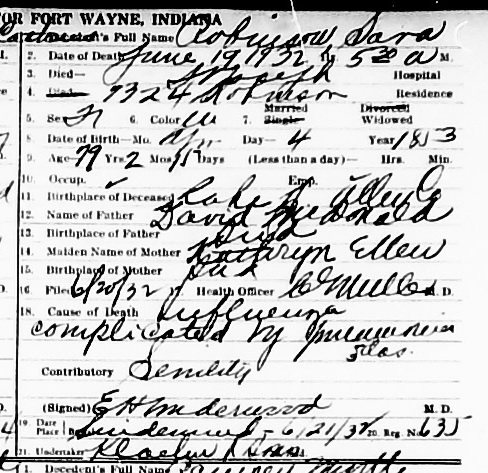 OR FORT WAYNE, INDIANA
Decedent's Full Name Robinson Sara
2. Date of Death June 19, 1932, Hr. 5:30 a M.
3. Died— St Joseph Hospital
4. Died— Robinson Residence
5. Sex F 6. Color W 7. Married Single Divorced Widowed
8. Date of Birth—Mo. Apr Day— 4 Year 1853
9. Age 79 Yrs. 2 Mos. 15 Days (Less than a day)— Hrs. Min.
10. Occup. Emp.
11. Birthplace of Deceased Lake Allen Co
12. Name of Father David McDonald
13. Birthplace of Father Ind
14. Maiden Name of Mother Kathryn Ellen
15. Birthplace of Mother Ind
16. Filed 6/20/32 17. Health Officer M. D.
18. Cause of Death influenza
complicated by pneumonia
3 das.
Contributory Senility
(Signed) E H Underwood M. D.
19. Date Place Lindenwood - 6/21/32 20. Reg. No. 635
21. Undertaker Klaehn & Sons
1. Decedent's Full Name